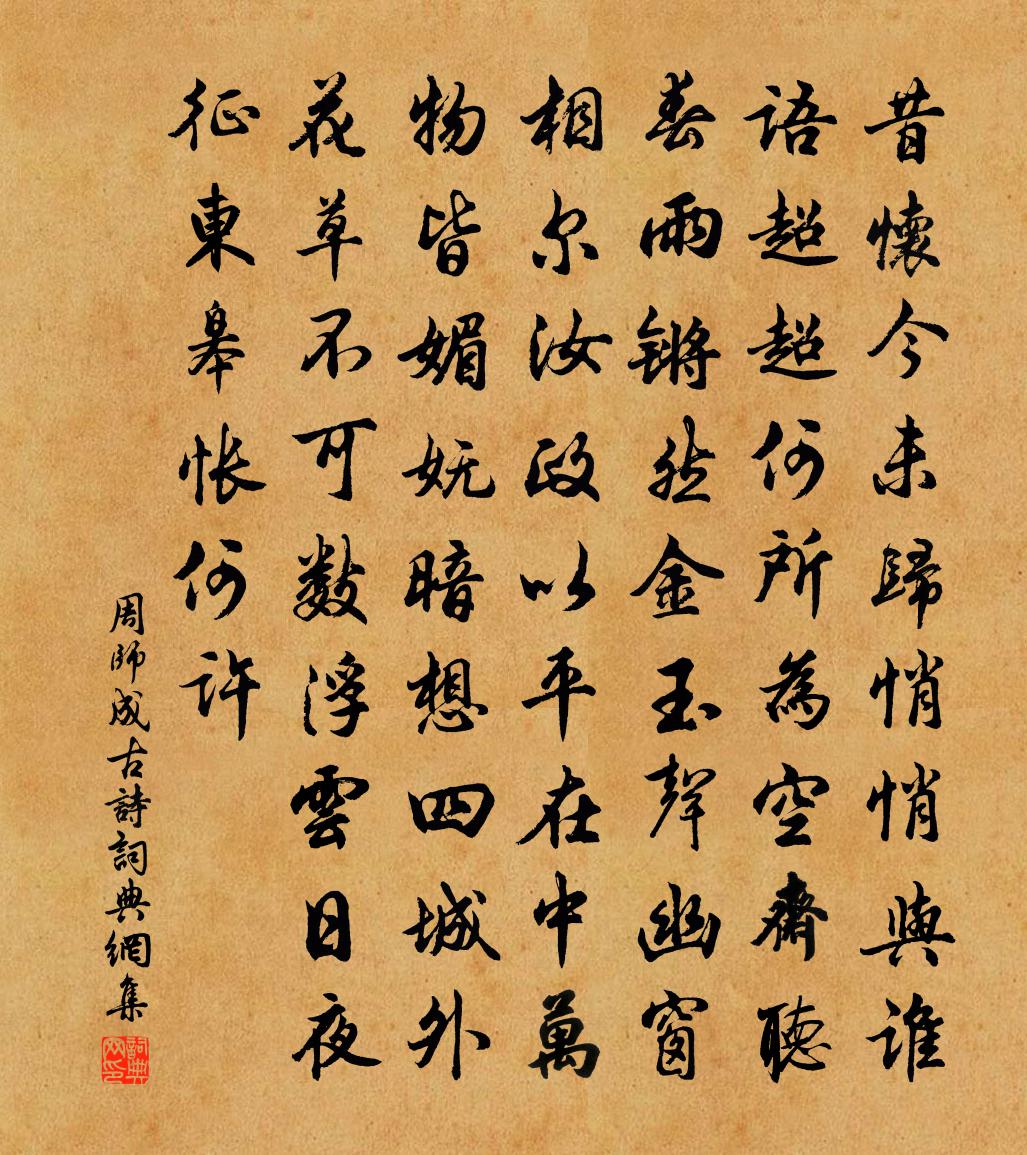 昔懷今未歸悄悄與誰
語超超何所為空齋聽
春雨鏘然金玉聲幽窗
相尔汝政以平在中萬
物皆媚妩暗想四城外
花草不可數浮雲日夜
征東皋悵何許
周師成古詩詞典網集
詞典网印